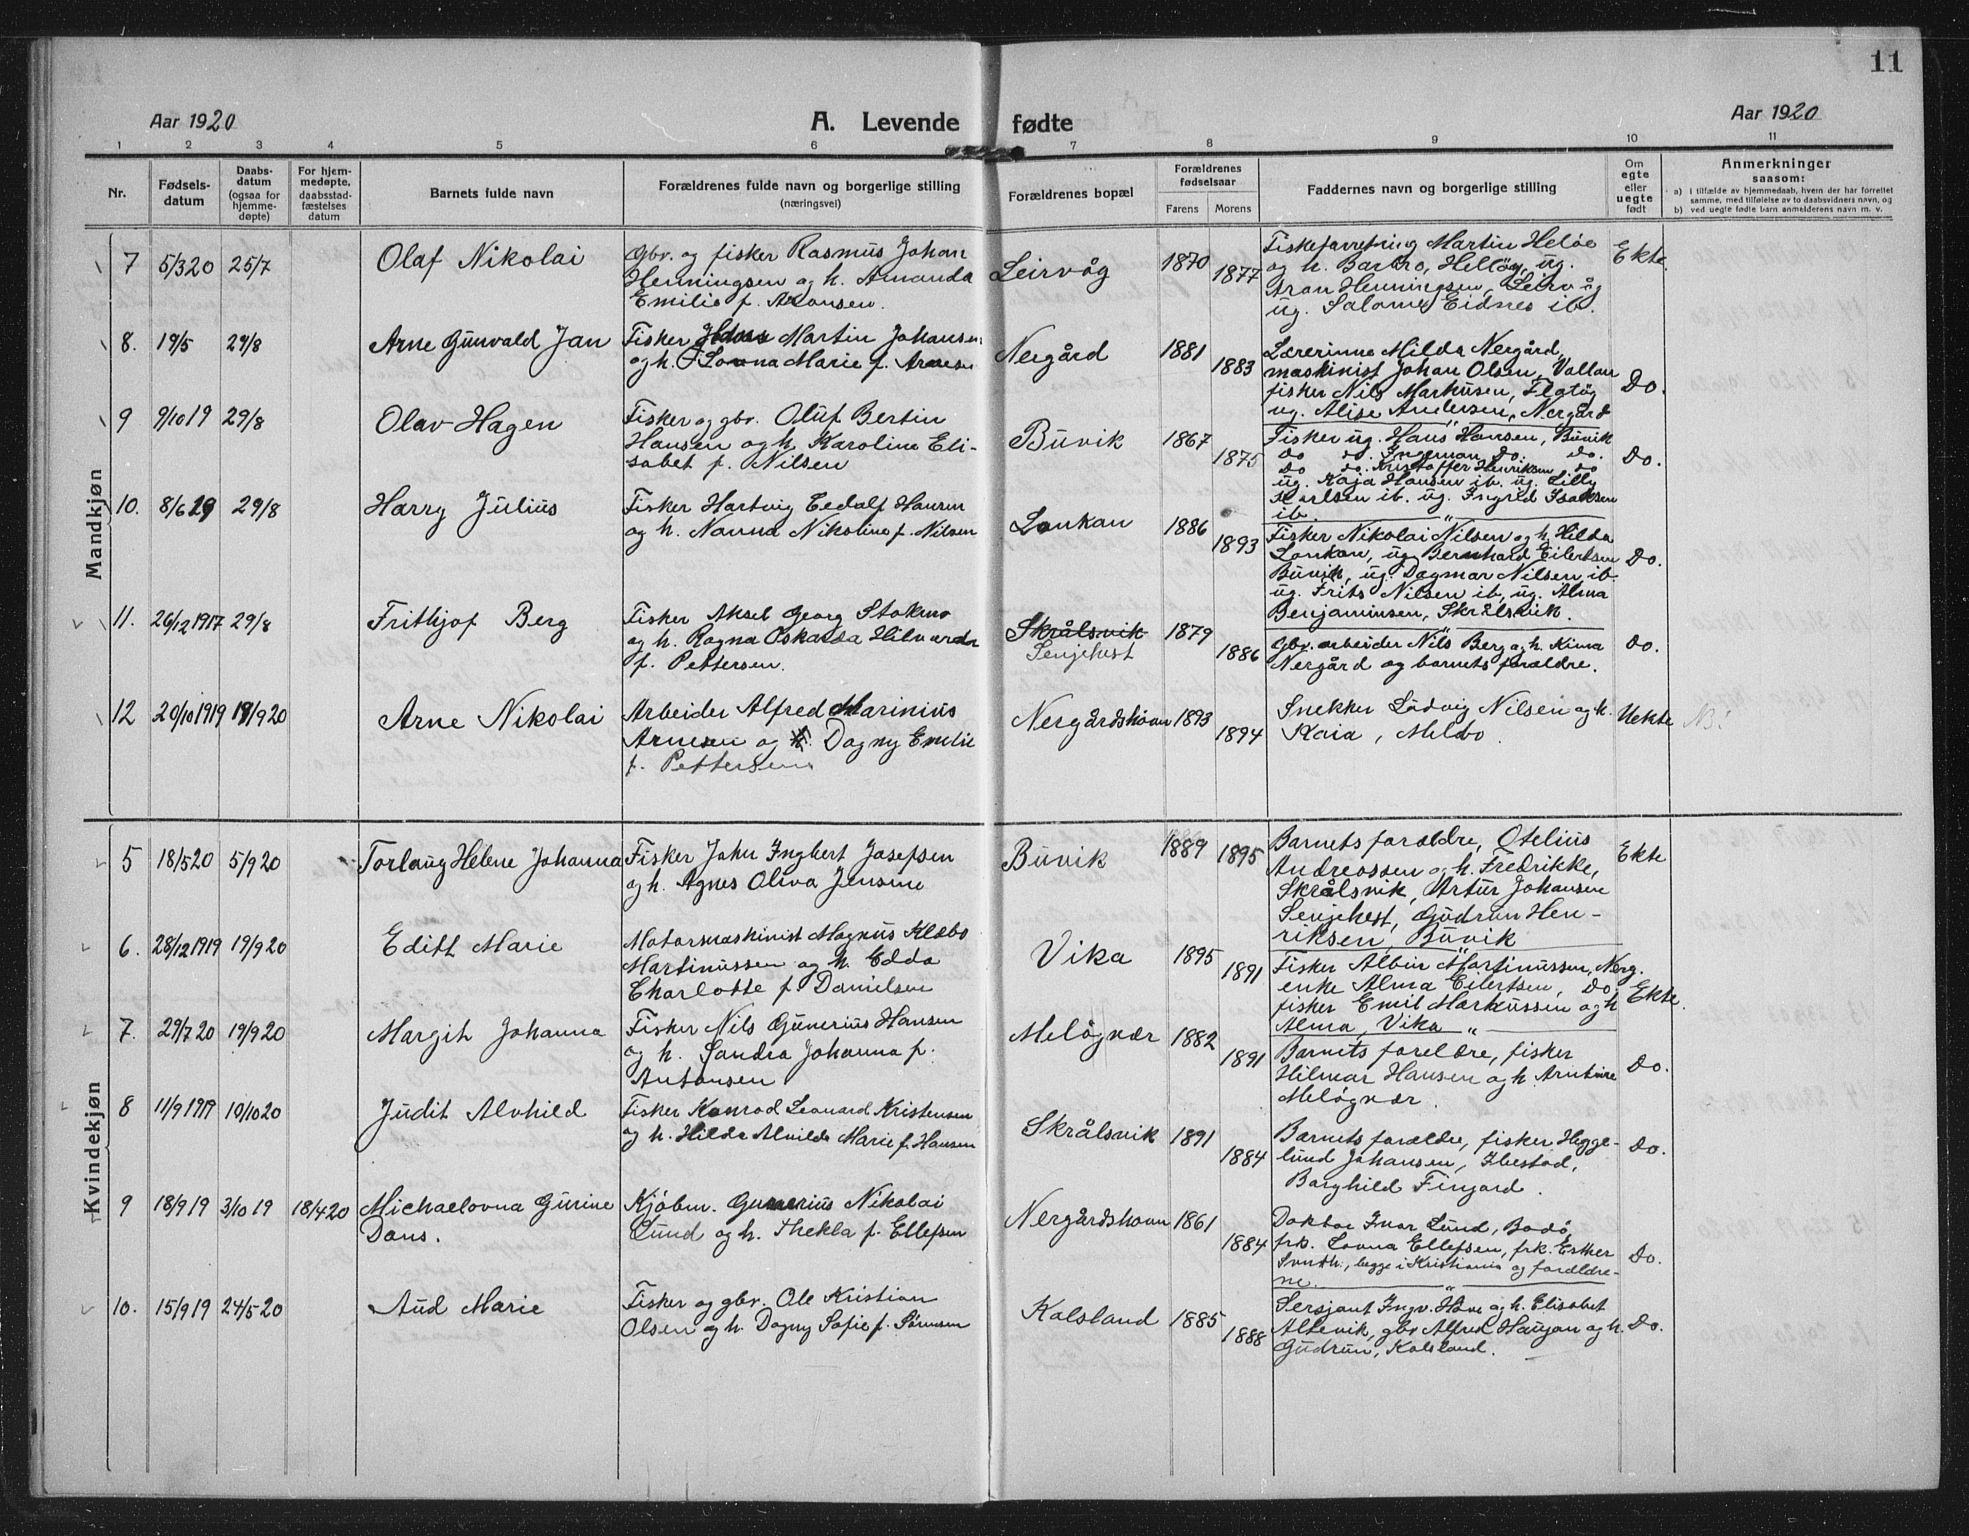 11
Aar 1920
A. Levende fødte
Aar 1920
1 2 3 4 5 6 7 8 9 10 11
Nr.
Fødsels-
datum
Daabs-
datum
(ogsaa for
hjemme-
døpte)
For hjem-
medøpte,
daabsstad-
fæstelses
datum
Barnets fulde navn
Forældrenes fulde navn og borgerlige stilling
(næringsvei)
Forældrenes bopæl
Forældrenes
fødselsaar
Farens Morens
Faddernes navn og borgerlige stilling
Om
egte
eller
uegte
født
Anmerkninger
saasom:
a) i tilfælde av hjemmedaab, hvem der har forrettet
samme, med tilføielse av to daabsvidners navn, og
b) ved uegte fødte barn anmelderens navn m. v.
Mandkjøn
7 5/3 20 25/7 Olaf Nikolai
Gbr. og fisker Rasmus Johan
Henningsen og h. Amanda
Emilie f. Aronsen.
Leirvåg 1870 1877
Fiskeforretning Martin Heløe
og h. Barbro, Helløy, ug.
Aron Henningsen, Leirvåg
ug. Salome Eidnes ib.
Ekte
8. 19/5 29/8 Arne Gunvald Jan
Fisker Martin Johansen
og h. Lovna Marie f. Arnesen
Nergård 1881 1883
Lærerinne Milda Nergård,
maskinist Johan Olsen, Vollan
fisker Nils Markussen, Flatøy
ug. Alise Andersen, Nergård
Do.
9 9/10 19 29/8 Olav Hagen
Fisker og gbr. Oluf Bertin
Hansen og h. Karoline Eli-
sabet f. Nilsen
Buvik 1867 1875
Fisker ug. Hans Hansen, Buvik
do do. Ingeman do. do.
do do. Kristoffer Henriksen do
ug. Kaja Hansen ib. ug. Lilly
Karlsen ib. ug. Ingrid Isaksen
ib.
Do.
10. 8/6 19 29/8 Harry Julius
Fisker Hartvig Eedolf Hansen
og h. Nanna Nikoline f. Nilsen
Lonkan 1886 1893
Fisker Nikolai Nilsen og h. Hilda
Lonkan, ug. Bernhard Eilertsen
Buvik, ug. Dagmar Nilsen ib.
ug. Frits Nilsen ib, ug. Alma
Benjaminsen, Skrålsvik.
Do.
11. 26/12 1917 29/8 Frithjof Berg
Fisker Aksel Georg Stokmo
og h. Ragna Oskarda
f. Pettersen.
Skrålsvik
Senjehest
1879 1886
Gbr. arbeider Nils Berg og h. Kima
Nergård og barnets forældre.
do.
12 20/10 1919 19/9 20 Arne Nikolai
Arbeider Alfred Marinius
Arnesen og h. Dagny Emelie
f. Pettersen
Nergårdshavn 1893 1894
Snekker Ludvig Nilsen og h.
Kaia, Melbo.
Uekte
Kvindekjøn
5 18/5 20 5/9 20 Torlaug Helene Johanna
Fisker John Ingbert Josefsen
og h. Agnes Oliva Jensine
Buvik 1889 1895
Barnets forældre, Otelius
Andreassen og h. Fredrikke,
Skrålsvik, Artur Johansen
Senjehest, Gudrun Hen-
riksen, Buvik
Ekte
6. 28/12 1919 19/9 20 Edith Marie
Motormaskinist Magnus Klæbo
Martinussen og h. Edda
Charlotte f. Danielsen
Vika 1895 1891
Fisker Albin Martinussen, Nerg.
enke Alma Eilertsen, do.
fisker Emil Markussen og h
Alma, Vika
Ekte.
7. 29/7 20 19/9 20 Margit Johanna
Fisker Nils Gunerius Hansen
og h. Sandra Johanna f.
Antonsen
Meløyvær 1882 1891
Barnets forældre, fisker
Hilmar Hansen og h. Arntine
Meløyvær.
Do.
8 11/9 1919 10/10 20 Judit Alvhild
Fisker Konrad Leonard Kristensen
og h. Hilda Alvilda Marie f. Hansen
Skrålsvik 1891 1884
Barnets forældre, fisker Hegge-
lund Johansen, Ibestad,
Borghild Finjord.
Do.
9 18/9 19 3/10 19 18/4 20 Michaelovna Gurine
Dons.
Kjøbm. Gunerius Nikolai
Lund og h. Thekla f. Ellefsen
Nergårdshavn 1861 1884
Doktor Ivar Lund, Bodø,
frk. Lovna Ellefsen, frk. Esther
begge i Kristiania og forældre-
ne.
Do.
10. 15/9 19 24/5 20 Aud Marie
Fisker og gbr. Ole Kristian
Olsen og h. Dagny Sofie f. Sørensen
Kalsland 1885 1888
Sersjant Ingv. Hove og h. Elisabet
Altevik, gbr Alfred Haugan og h.
Gudrun, Kalsland.
Do.